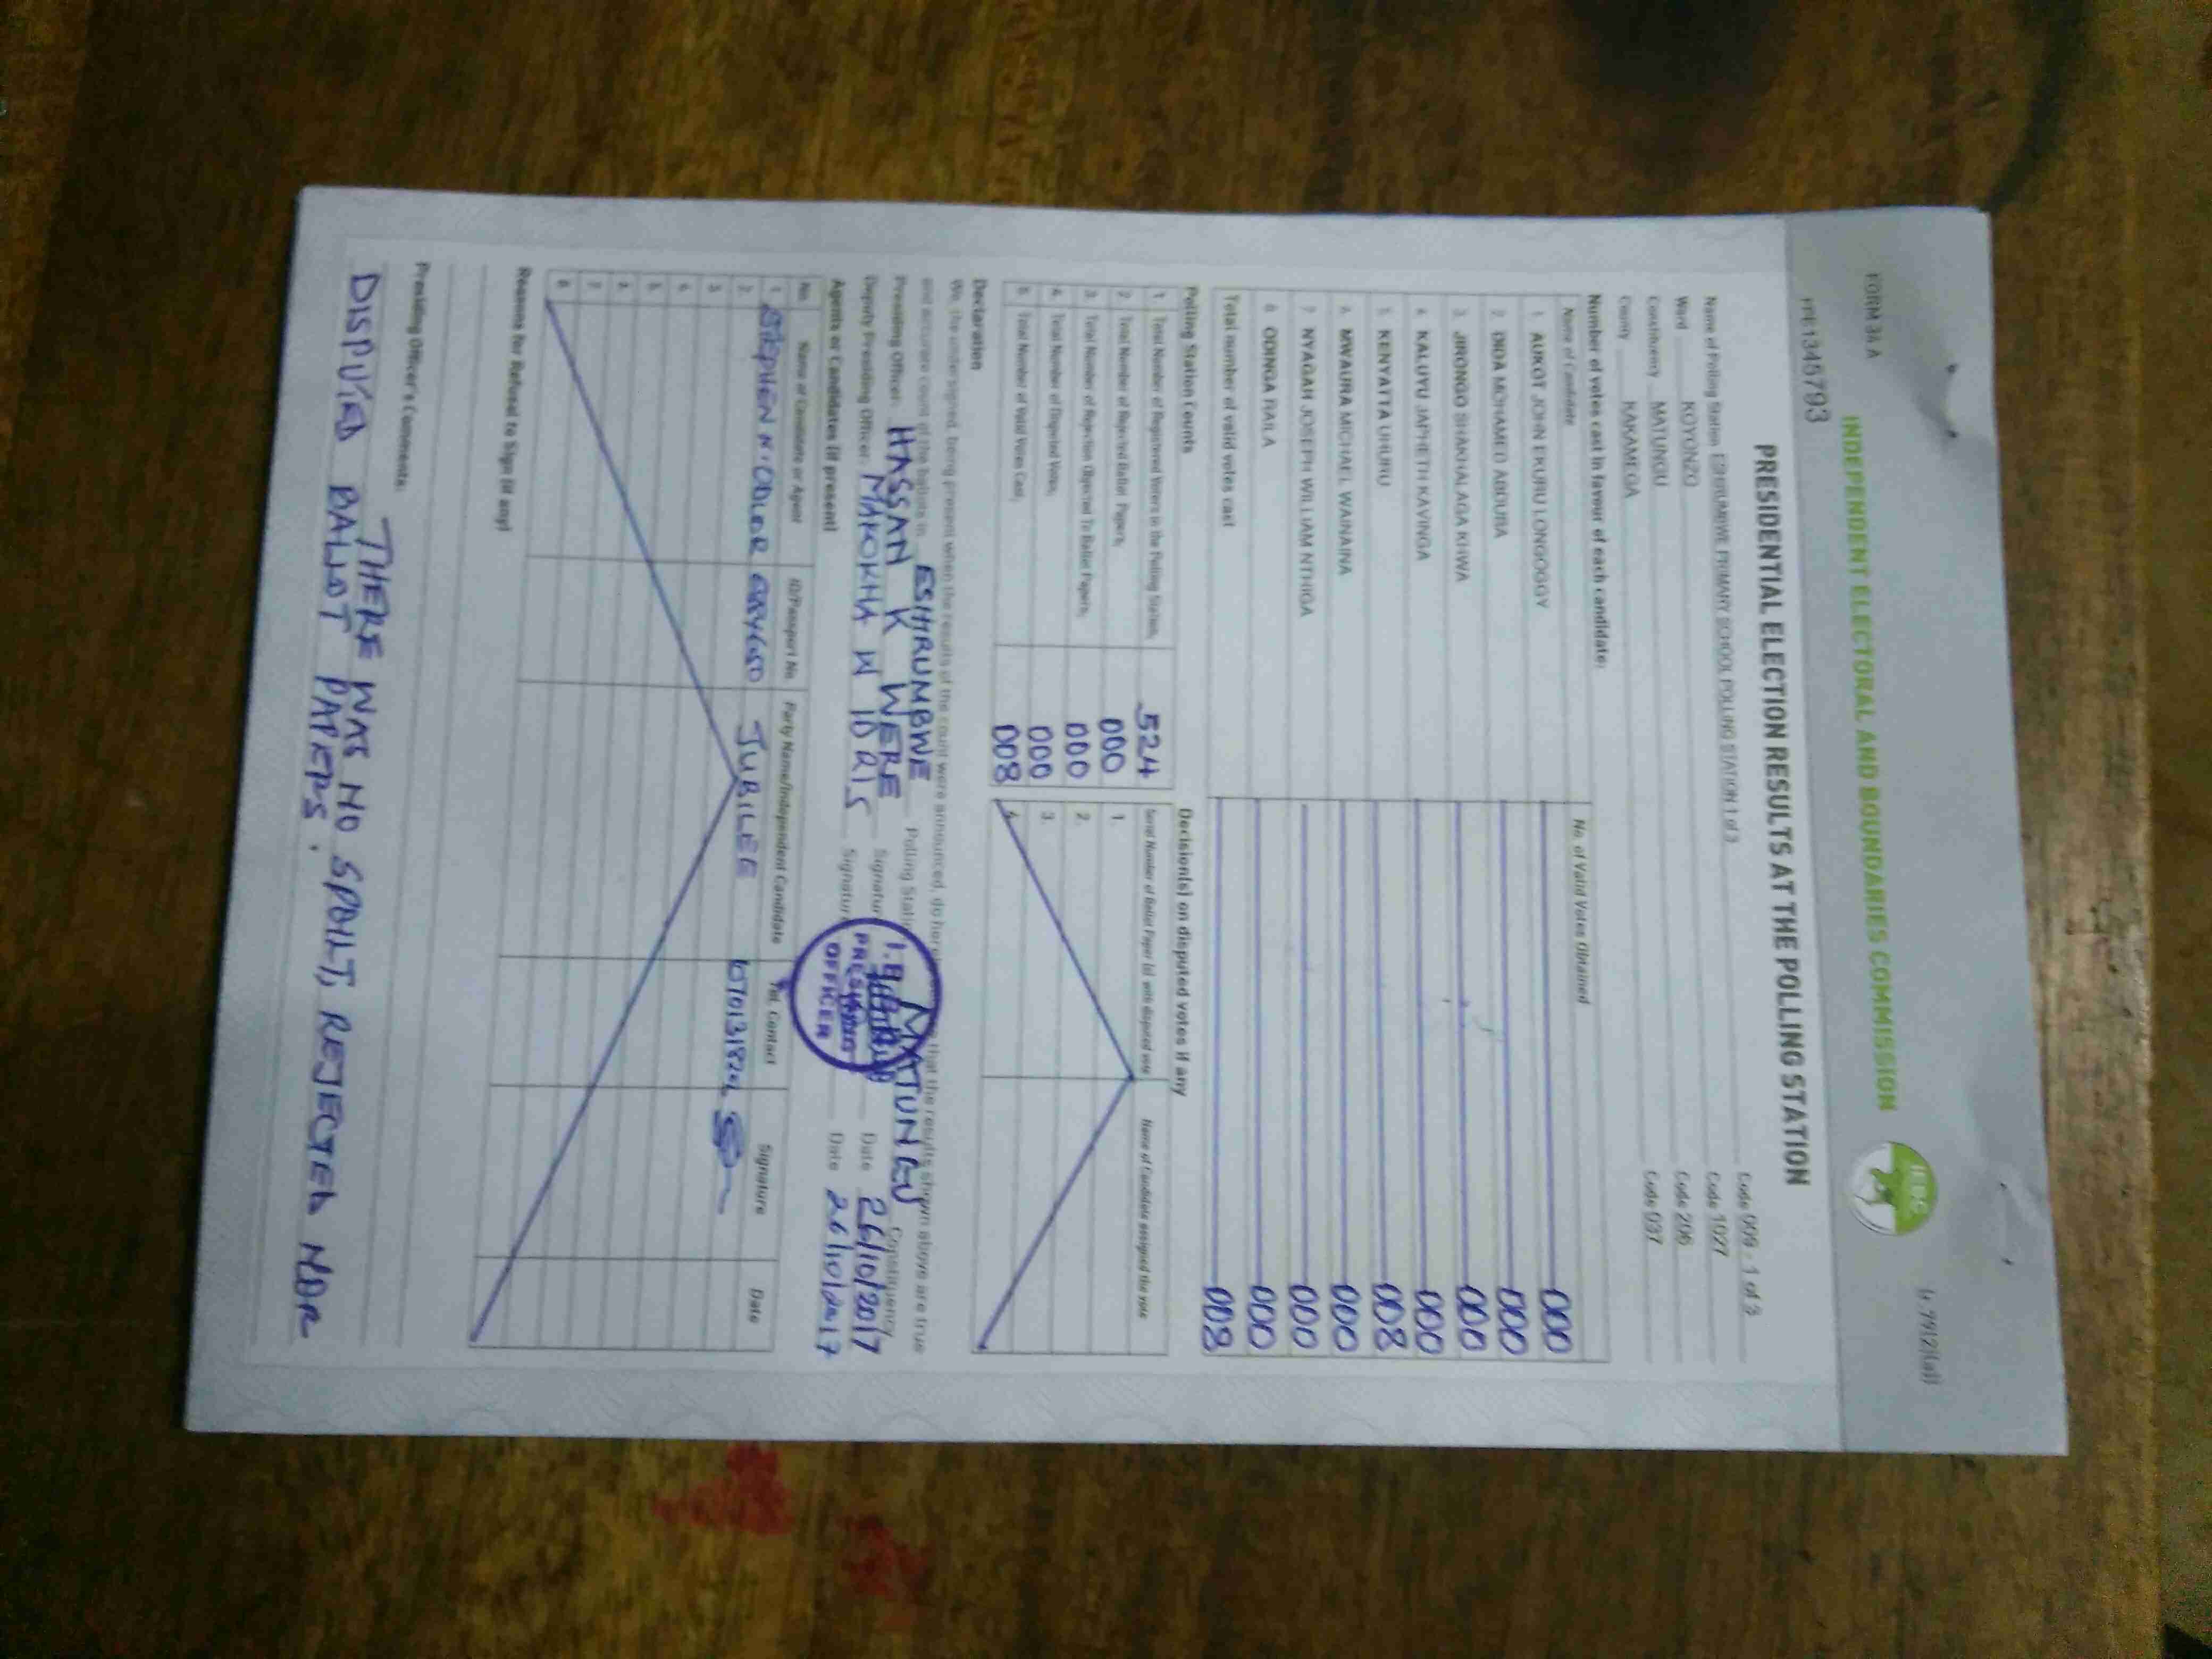 FORM 34 A
INDEPENDENT ELECTORAL AND BOUNDARIES COMMISSION
IEBC
PRESIDENTIAL ELECTION RESULTS AT THE POLLING STATION
Name of Polling Station ESHRUMBWE PRIMARY SCHOOL POLLING STATION 1 of 3 Code 009 - 1 of 3
Ward KOYONZO Code 1027
Constituency MATUNGU Code 206
County KAKAMEGA Code 037
Number of votes cast in favour of each candidate:
Name of Candidate No. of Valid Votes Obtained
1. AUKOT JOHN EKURU LONGOGGY 000
2. DIDA MOHAMED ABDUBA 000
3. JIRONGO SHAKHALAGA KHWA 000
4. KALUYU JAPHETH KAVINGA 000
5. KENYATTA UHURU 008
6. MWAURA MICHAEL WAINAINA 000
7. NYAGAH JOSEPH WILLIAM NTHIGA 000
8. ODINGA RAILA 000
Total number of valid votes cast 008
Polling Station Counts
1. Total Number of Registered Voters in the Polling Station, 524
2. Total Number of Rejected Ballot Papers, 000
3. Total Number of Rejection Objected To Ballot Papers, 000
4. Total Number of Disputed Votes, 000
5. Total Number of Valid Votes Cast, 008
Decision(s) on disputed votes if any
Serial Number of Ballot Paper (s) with disputed vote Name of Candidate assigned the vote
1.
2.
3.
4.
Declaration
We, the undersigned, being present when the results of the count were announced, do here that the results shown above are true
and accurate count of the ballots in ESHRUMBWE Polling Stati MATUNGU Constituency
Presiding Officer: HASSAN K WERE Signatur Date 26/10/2017
Deputy Presiding Officer: MAKOKHA W IDRIS Signature Date 26/10/2017
PRESIDING
OFFICER
Agents or Candidates (if present)
No. Name of Candidate or Agent ID/Passport No. Party Name/Independent Candidate Tel. Contact Signature Date
1. STEPHEN N. JUBILEE
2.
3.
4.
5.
6.
7.
8.
Reasons for Refusal to Sign (if any)
Presiding Officer's Comments:
THERE WAS NO SPOILT, REJECTED NOR
DISPUTED BALLOT PAPERS.